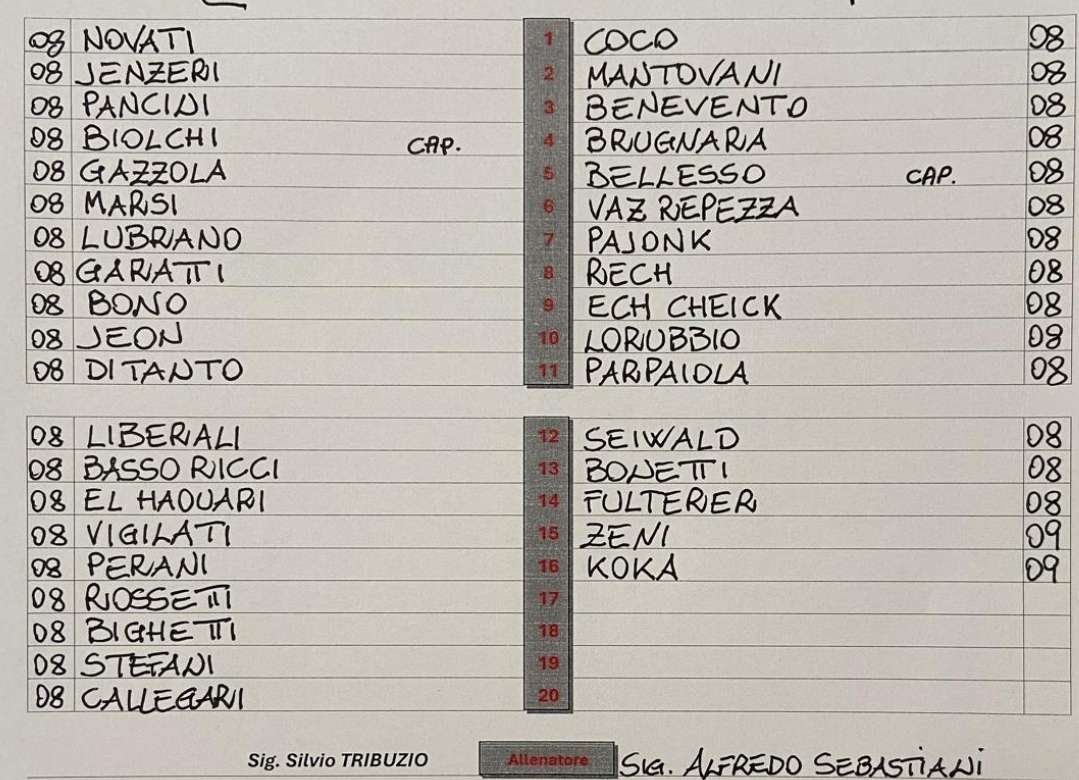 08 NOVATI 1 COCO 08
08 JENZERI 2 MANTOVANI 08
08 PANCINI 3 BENEVENTO 08
08 BIOLCHI CAP. 4 BRUGNARA 08
08 GAZZOLA 5 BELLESSO CAP. 08
08 MARSI 6 VAZ REPEZZA 08
08 LUBRANO 7 PAJONK 08
08 GARATTI 8 RECH 08
08 BONO 9 ECH CHEICK 08
08 JEON 10 LORUBBIO 08
08 DITANTO 11 PARPAIOLA 08
08 LIBERALI 12 SEIWALD 08
08 BASSO RICCI 13 BONETTI 08
08 EL HAOUARI 14 FULTERER 08
08 VIGILATI 15 ZENI 09
08 PERANI 16 KOKA 09
08 ROSSETTI 17
08 BIGHETTI 18
08 STEFANI 19
08 CALLEGARI 20
Sig. Silvio TRIBUZIO Allenatore SIG. ALFREDO SEBASTIANI